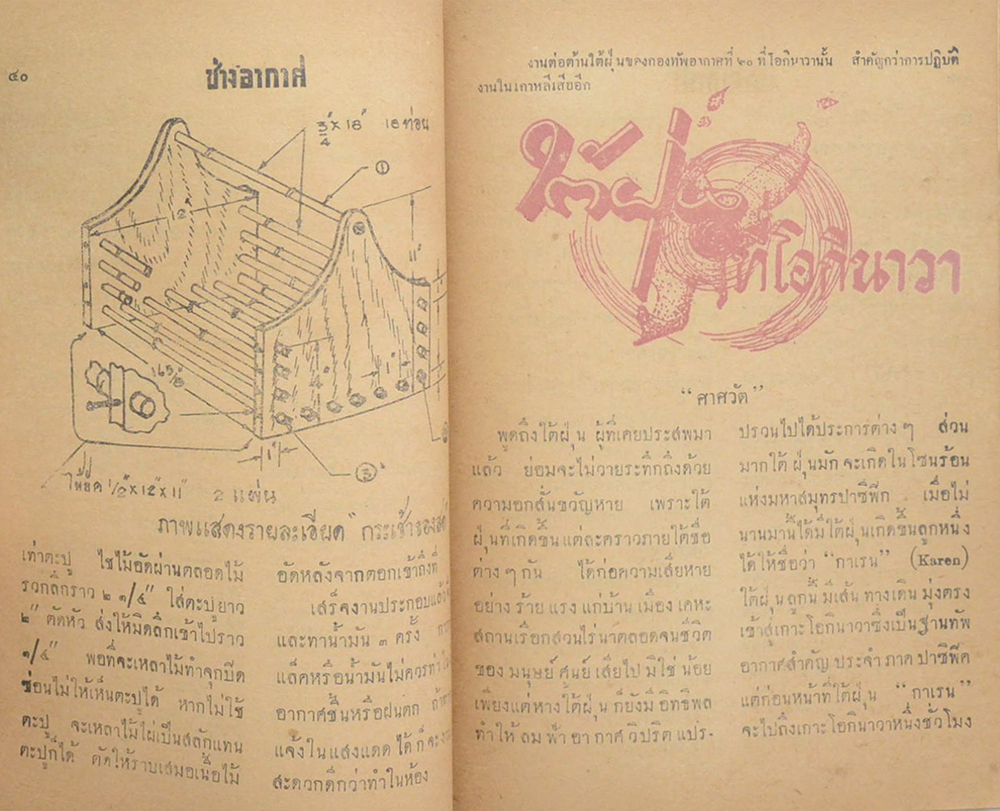 ๔๐
ช่างอากาศ
3/4" x 18" 18 ท่อน
①
2
11"
16 5/8"
4"
1"
1"
③
ให้ยึด 1/2" x 12" x 11" 2 แผ่น
ภาพแสดงรายละเอียด "กระเช้า
เท่าตะปู ไชไม้อัดผ่านตลอดไม้
รวกลึกราว ๒ ๑/๔" ใส่ตะปูยาว
๒" ตัดหัว ส่งให้มิดลึกเข้าไปราว
๑/๔" พอที่จะเหลาไม้ทำจุกปิด
ซ่อนไม่ให้เห็นตะปูได้ หากไม่ใช้
ตะปู จะเหลาไม้ไผ่เป็นสลักแทน
ตะปูก็ได้ ตัดให้ราบเสมอเนื้อไม้
อัดหลังจากตอกเข้าถึงที่
เสร็จงานประกอบแล้ว
และทาน้ำมัน ๓ ครั้ง
แล็คหรือน้ำมันไม่ควรทำ
อากาศชื้นหรือฝนตก
แจ้งในแสงแดดได้ก็จะ
สะดวกดีกว่าทำในห้อง
งานต่อต้านใต้ฝุ่นของกองทัพอากาศที่ ๒๐ ที่โอกินาวานั้น สำคัญกว่าการปฏิบัติ
งานในเกาหลีเสียอีก
ใต้ฝุ่น
ที่โอกินาวา
"ศาศวัต"
พูดถึงใต้ฝุ่น ผู้ที่เคยประสพมา
แล้ว ย่อมจะไม่วายระทึกถึงด้วย
ความอกสั่นขวัญหาย เพราะใต้
ฝุ่นที่เกิดขึ้นแต่ละคราวภายใต้ชื่อ
ต่างๆกัน ได้ก่อความเสียหาย
อย่างร้ายแรงแก่บ้านเมืองเคหะ
สถานเรือกสวนไร่นาตลอดจนชีวิต
ของมนุษย์ศูนย์เสียไปมิใช่น้อย
เพียงแต่หางใต้ฝุ่นก็ยังมีอิทธิพล
ทำให้ลมฟ้าอากาศวิปริตแปร-
ปรวนไปได้ประการต่างๆ ส่วน
มากใต้ฝุ่นมักจะเกิดในโซนร้อน
แห่งมหาสมุทรปาซิฟิก เมื่อไม่
นานมานี้ได้มีใต้ฝุ่นเกิดขึ้นลูกหนึ่ง
ได้ให้ชื่อว่า "กาเรน" (Karen)
ใต้ฝุ่นลูกนี้มีเส้นทางเดินมุ่งตรง
เข้าสู่เกาะโอกินาวาซึ่งเป็นฐานทัพ
อากาศสำคัญประจำภาคปาซิฟิค
แต่ก่อนหน้าที่ใต้ฝุ่น "กาเรน"
จะไปถึงเกาะโอกินาวาหนึ่งชั่วโมง